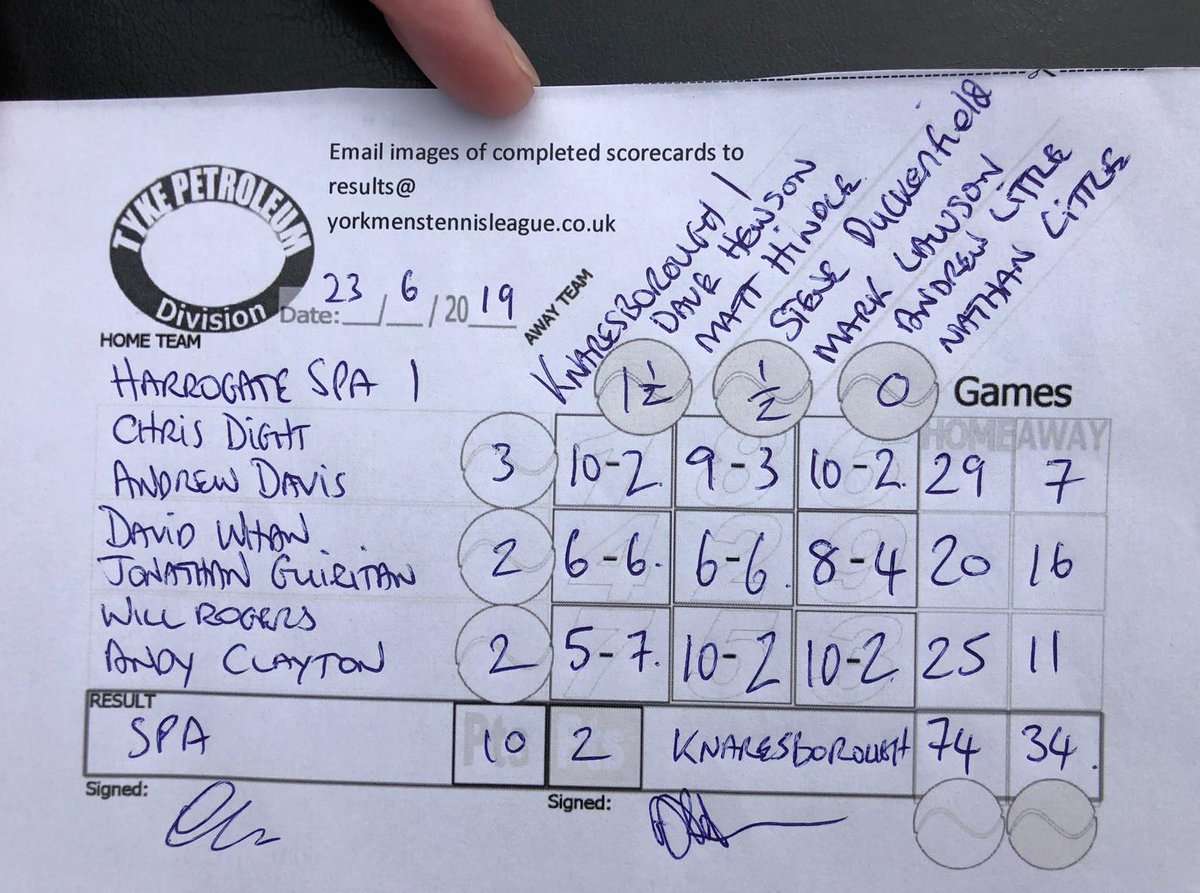 Email images of completed scorecards to
results@
yorkmenstennisleague.co.uk
TYKE PETROLEUM
Division
Date: 23 / 6 / 2019
AWAY TEAM
KNARESBOROUGH 1
DAVE HEWSON
MATT HINDLE
STEVE DUCKENFIELD
MARK LAWSON
ANDREW LITTLE
NATHAN LITTLE
HOME TEAM
HARROGATE SPA 1
1½ ½ 0
Games
HOME AWAY
CHRIS DIGHT
ANDREW DAVIS
3 10-2. 9-3 10-2. 29 7
DAVID WHAN
JONATHAN GUIRITAN
2 6-6. 6-6. 8-4 20 16
WILL ROGERS
ANDY CLAYTON
2 5-7. 10-2 10-2 25 11
RESULT
SPA 10 2 KNARESBOROUGH 74 34.
Pts
Signed:
Signed: